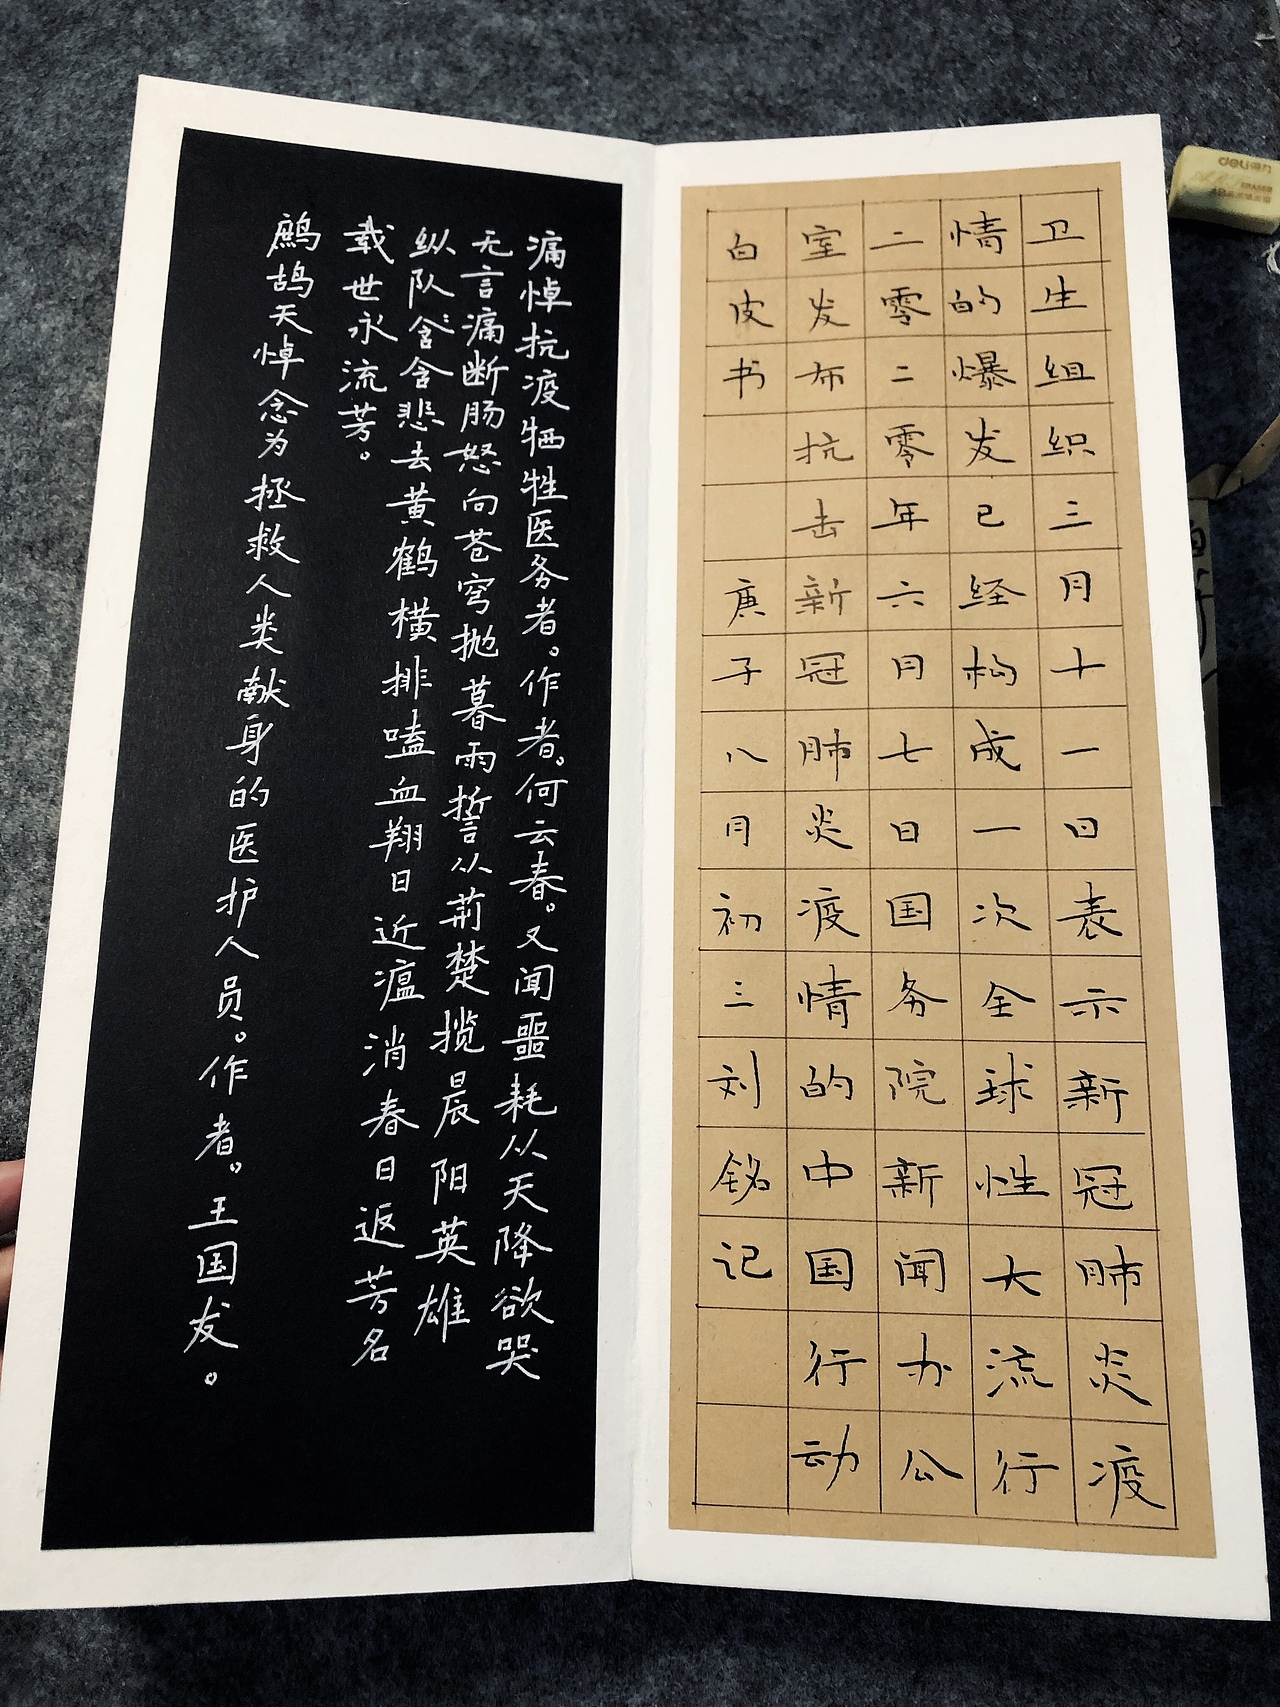 卫生组织三月十一日表示新冠肺炎疫
情的爆发已经构成一次全球性大流行
二零二零年六月七日国务院新闻办公
室发布抗击新冠肺炎疫情的中国行动
白皮书 庚子八月初三刘铭记
痛悼抗疫牺牲医务者。作者。何云春。又闻噩耗从天降欲哭
无言痛断肠怒向苍穹抛暮雨誓从荆楚揽晨阳英雄
纵队含含悲去黄鹤横排嗑血翔日近瘟消春日返芳名
载世永流芳。
鹧鸪天悼念为拯救人类献身的医护人员。作者。王国发。
deli得力